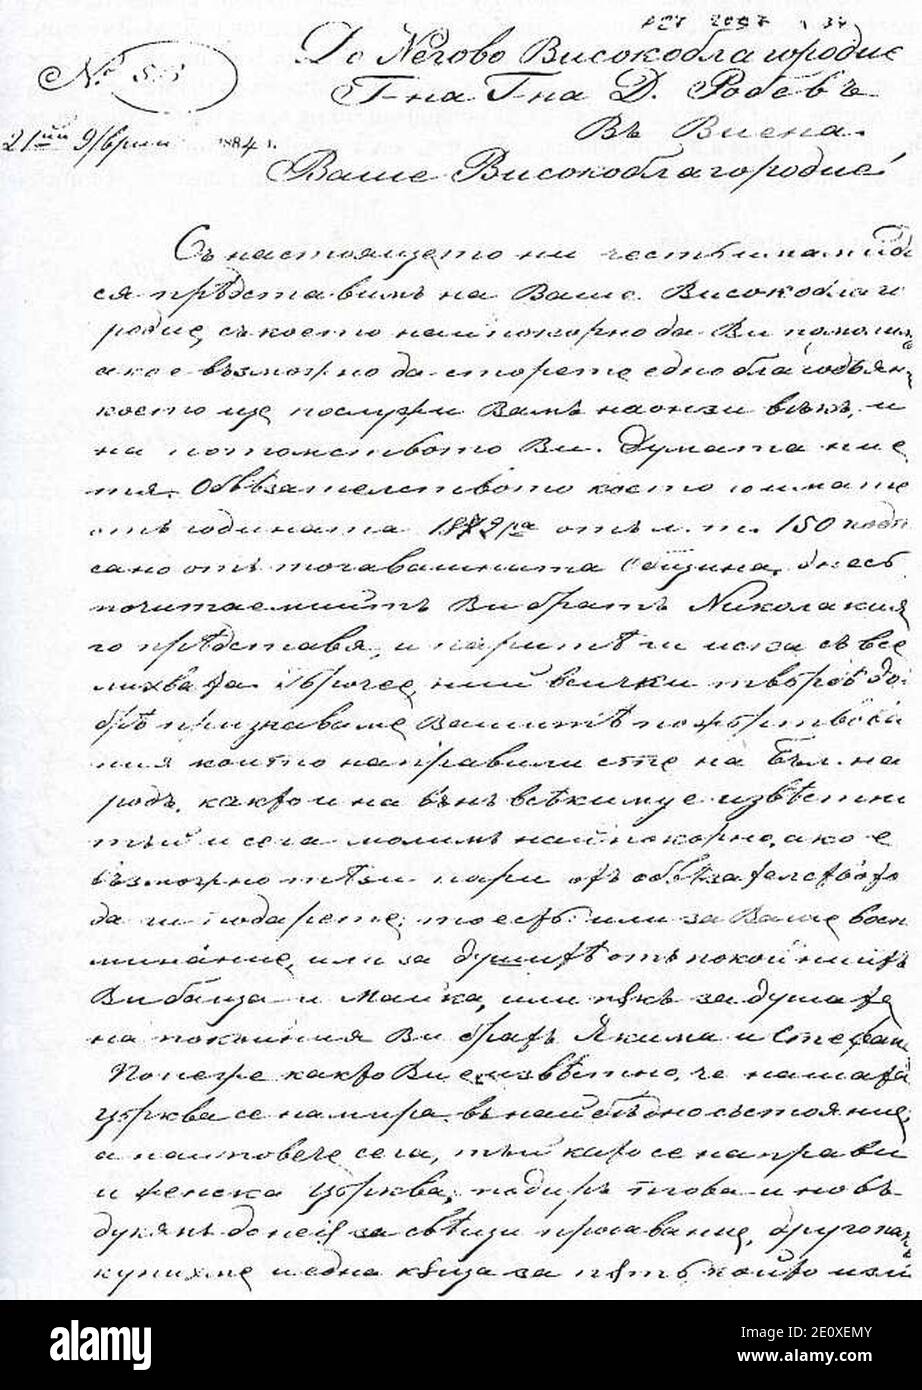 № 55
До Негово Високоблагородие
Г-на Г-на Д. Робевъ
21ий 9/врий 1884 г.
Въ Виена.
Ваше Високоблагородие!
Съ настоящето ни честь имами да
ся прѣдставимъ на Ваше Високоблаго
родие, съ което най покорно да Ви помолиме
ако е възможно да сторете едно благодѣяние
което ще послужи Вамъ на онзи вѣкъ, и
на потомството Ви. Думата ние
тия. Обѣзателството което имате
отъ годината 1872ра отъ л. т. 150 подпи
сано отъ тогавашнита Община, днесь
почитаемийтъ Ви братъ Николакия
го прѣдставя, и паритѣ ги иска съ все
лихвата. Оброчее, ний всички твърдѣ до-
брѣ признаваме Вашитѣ пожъртвова
ния които направили сте на Бъл. на
родъ, както и на вънъ всѣкиму е извѣстно
тъй и сега молимъ най покорно, ако е
възможно тѣзи пари отъ обѣзателството
да ги подарете; то есть: или за Ваше вспо
минание, или за душитѣ отъ покойнийтъ
Ви баща и майка, или пѫкъ за душата
на покойния Ви братъ Якима и Стефан
Понеже както Ви е извѣстно, че нашата
църква се намира въ най бѣдно състояние,
а най повече сега, тъй като се направи
и женска църква, подиръ това и новъ
дукянъ за свѣщи продавание, друго
купихме и една кѫща за пѣтъ който
alamy
Image ID: 2E0XEMY
www.alamy.com